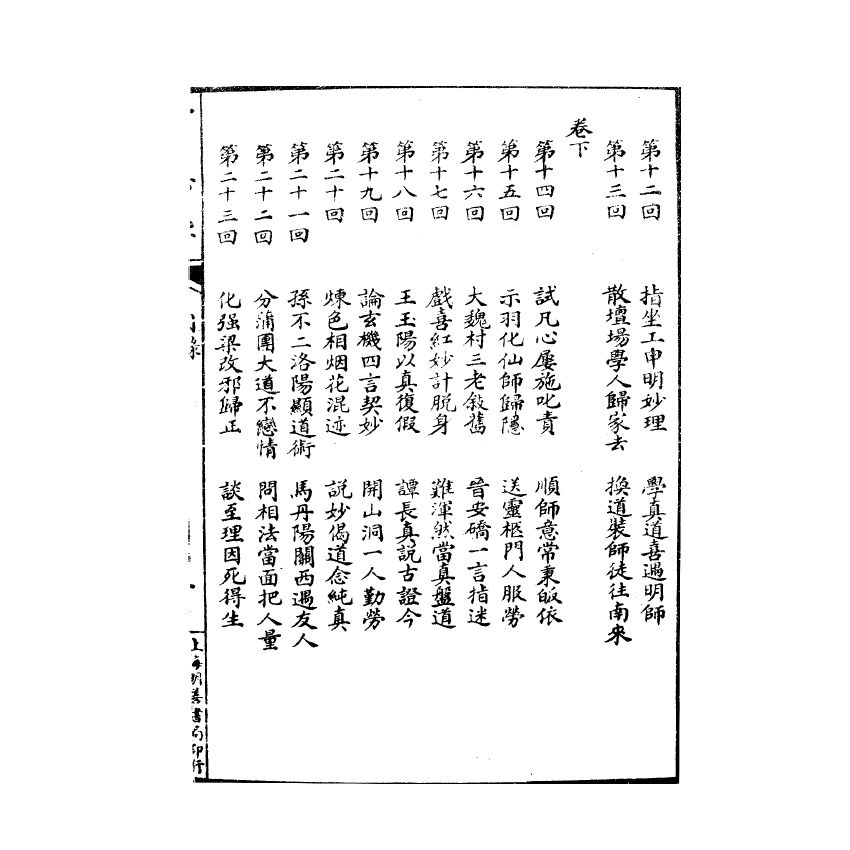 第十二回　指坐工申明妙理　學真道喜遇明師
第十三回　散壇場學人歸家去　換道裝師徒往南來
卷下
第十四回　試凡心屢施叱責　順師意常秉皈依
第十五回　示羽化仙師歸隱　送靈柩門人服勞
第十六回　大魏村三老敘舊　晉安礄一言指迷
第十七回　戲喜紅妙計脫身　難渾然當真盤道
第十八回　王玉陽以真復假　譚長真説古證今
第十九回　論玄機四言契妙　開山洞一人勤勞
第二十回　煉色相烟花混迹　説妙偈道念純真
第二十一回　孫不二洛陽顯道術　馬丹陽關西遇友人
第二十二回　分蒲團大道不戀情　問相法當面把人量
第二十三回　化强梁改邪歸正　談至理因死得生
目錄
上海明善書局印行